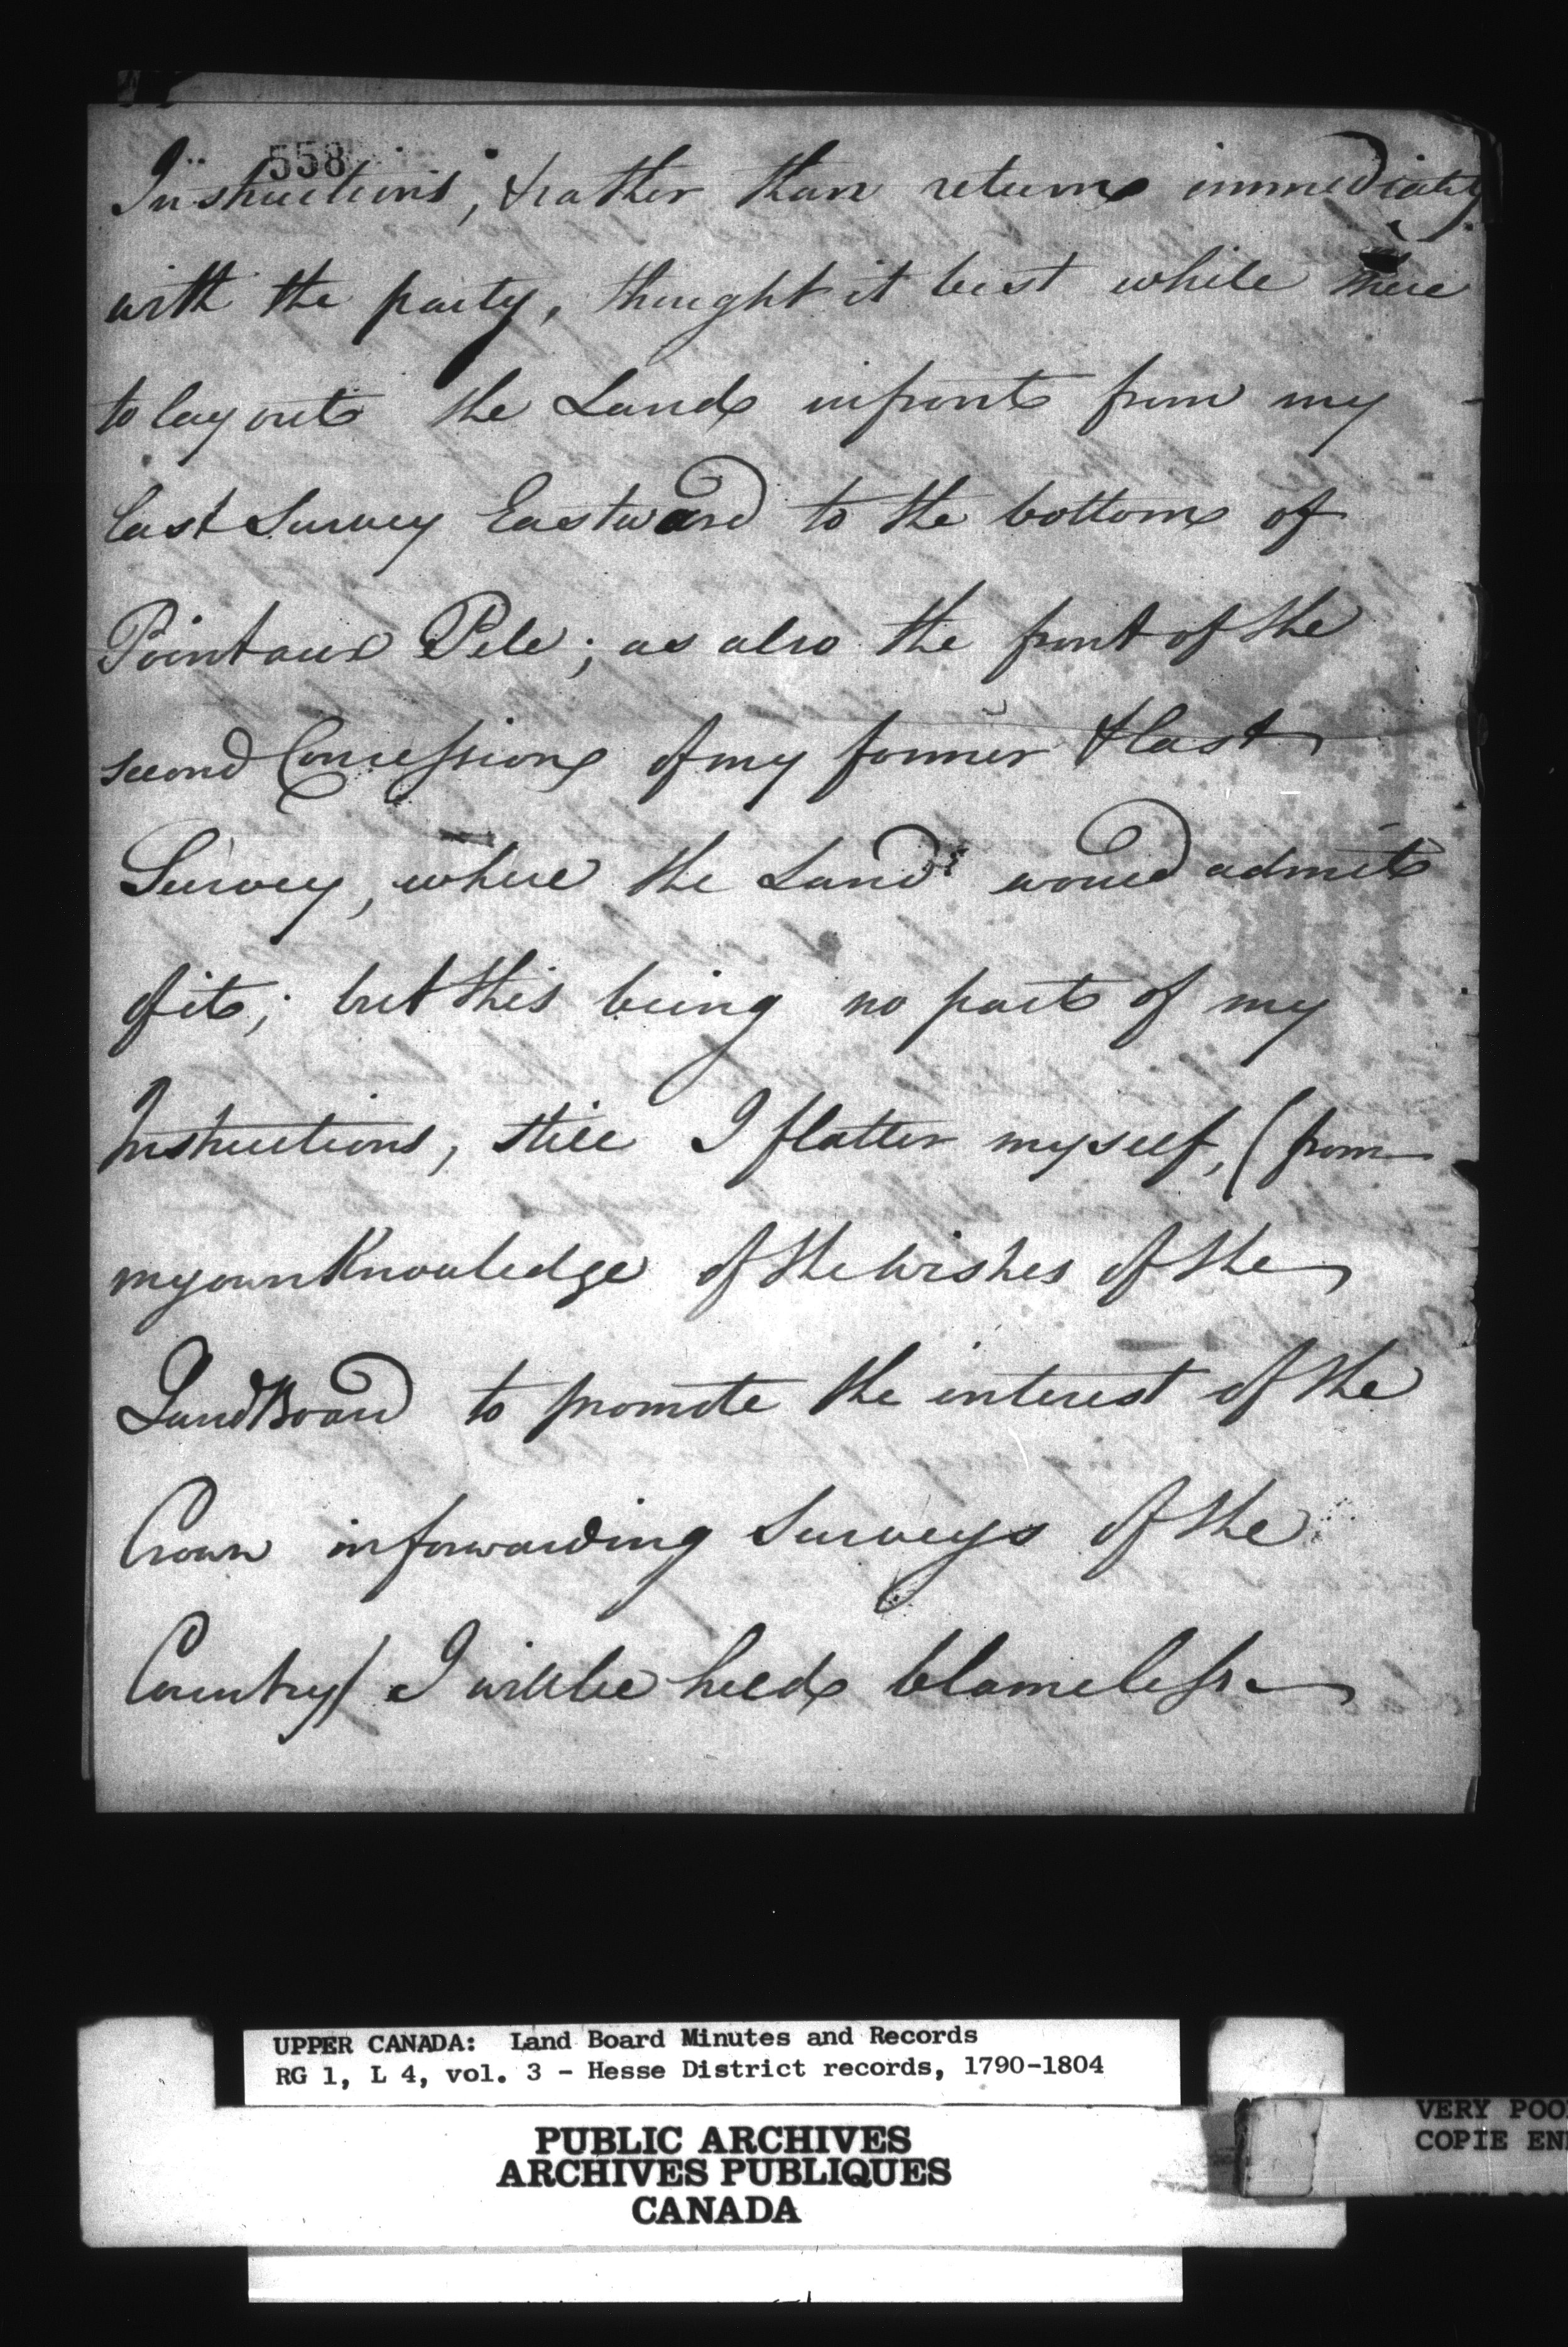 558
Instructions, & rather than return immediately
with the party, thought it best while there
to lay out the Land infront from my
last Survey Eastward to the bottom of
Point aux Pele; as also the front of the
second Concession of my former & last
Survey, where the Lands would admit
of it; but this being no part of my
Instructions, still I flatter myself, (from
my own Knowledge of the wishes of the
Land Board to promote the interest of the
Crown in forwarding Surveys of the
Country) I will be held blameless
UPPER CANADA: Land Board Minutes and Records
RG 1, L 4, vol. 3 - Hesse District records, 1790-1804
PUBLIC ARCHIVES
ARCHIVES PUBLIQUES
CANADA
VERY POO
COPIE EN